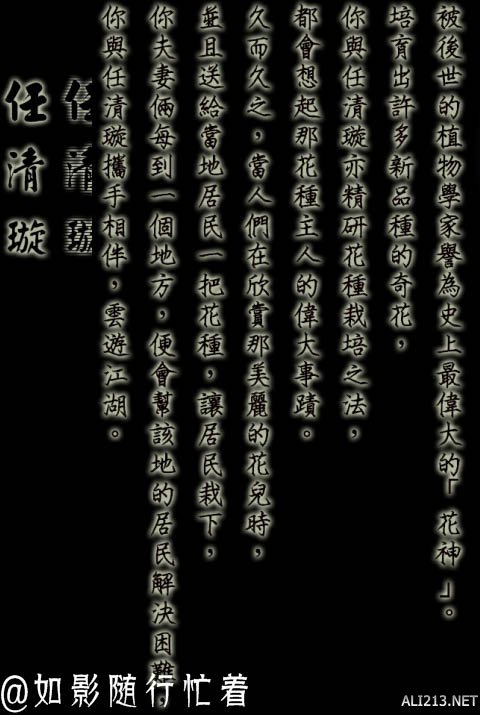 任清璇
你與任清璇攜手相伴，雲遊江湖。
你夫妻倆每到一個地方，便會幫該地的居民解決困難，
並且送給當地居民一把花種，讓居民栽下，
久而久之，當人們在欣賞那美麗的花兒時，
都會想起那花種主人的偉大事蹟。
你與任清璇亦精研花種栽培之法，
培育出許多新品種的奇花，
被後世的植物學家譽為史上最偉大的「花神」。
@如影随行忙着
ALI213.NET